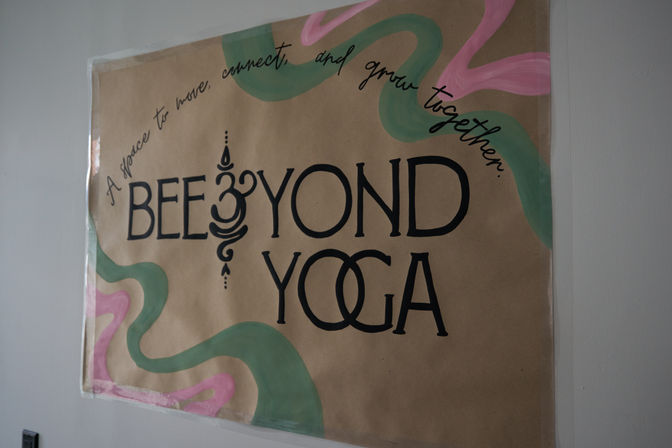 A space to move, connect, and grow together.
BEE YOND
YOGA